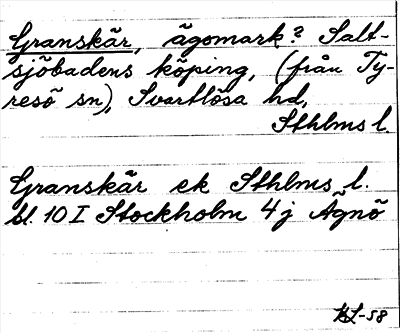 Granskär, ägomark? Salt-
sjöbadens köping, (från Ty-
resö sn), Svartlösa hd,
Sthlms l.
Granskär ek Sthlms l.
bl. 10 I Stockholm 4 j Ägnö
KL-58